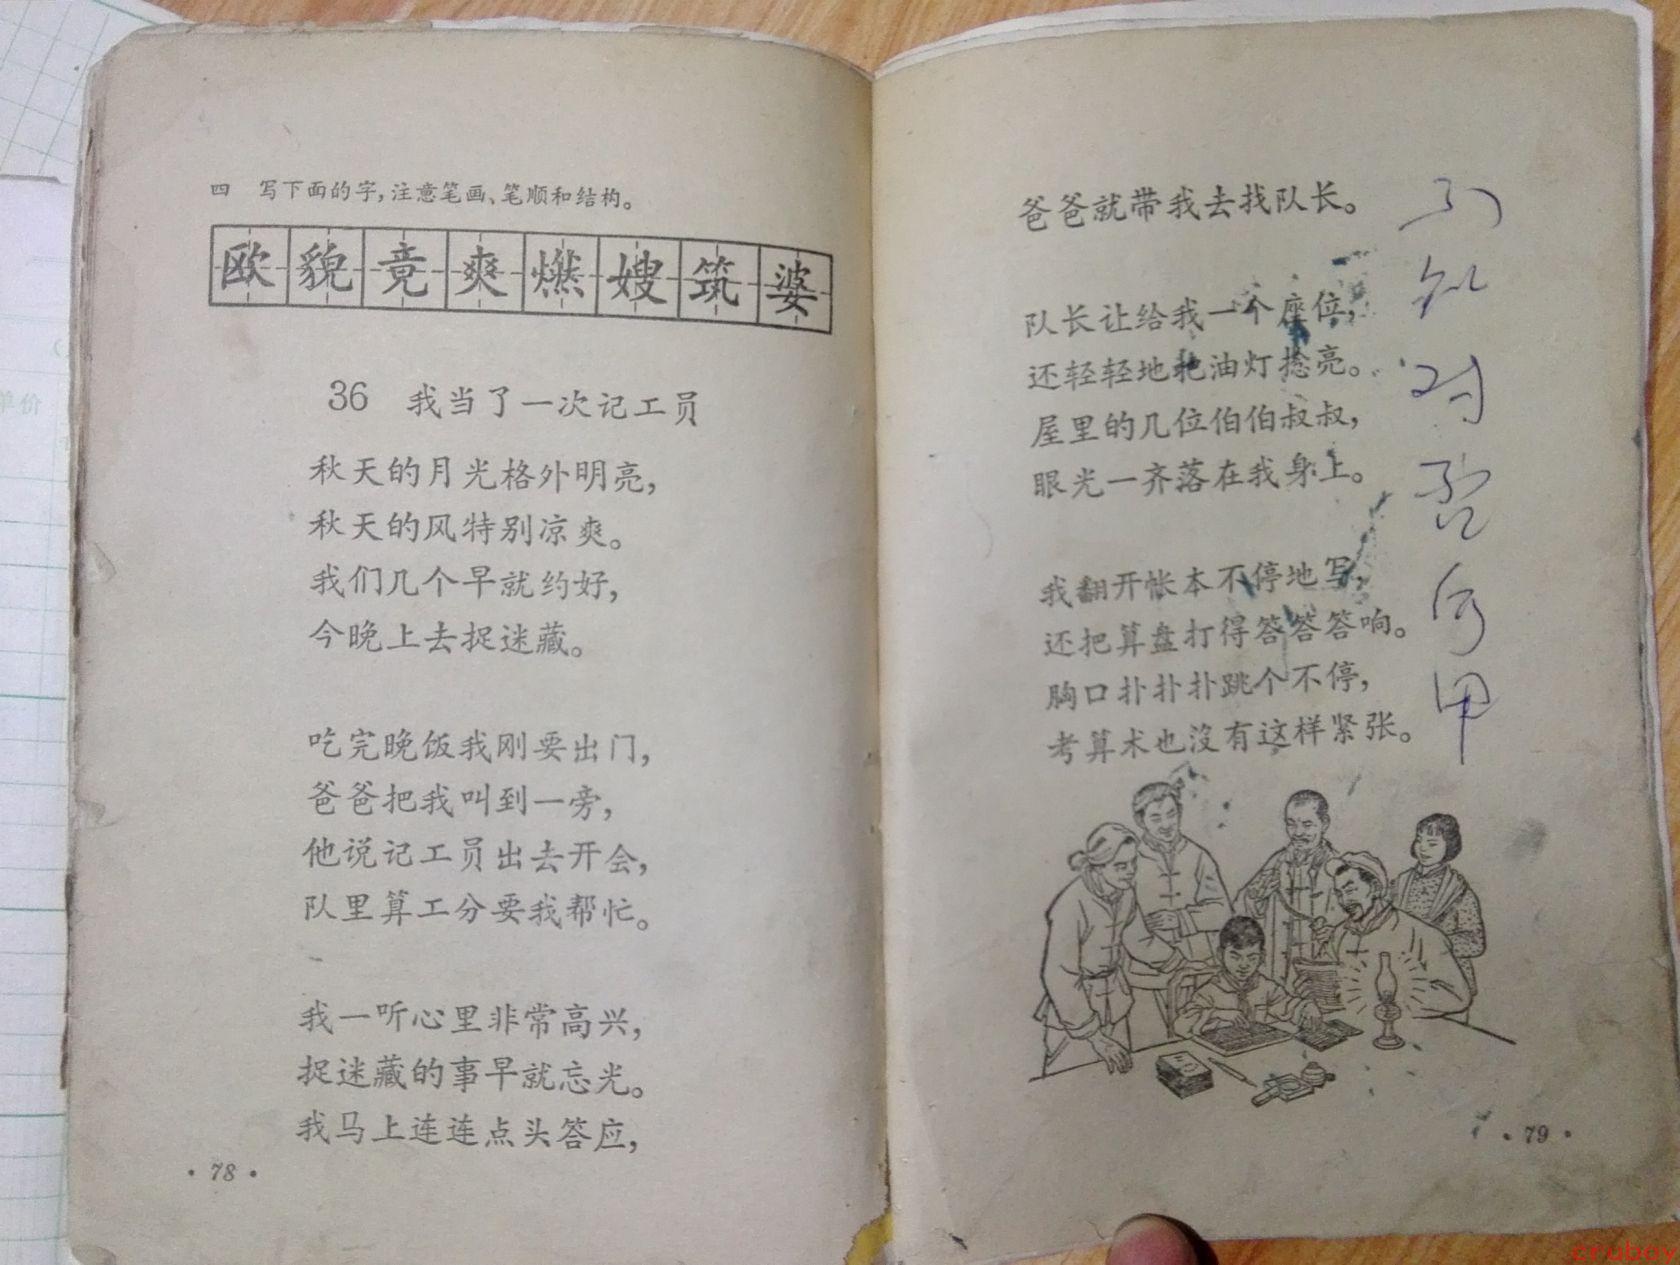 四 写下面的字，注意笔画、笔顺和结构。
欧貌竟爽燃嫂筑婆
36 我当了一次记工员
秋天的月光格外明亮，
秋天的风特别凉爽。
我们几个早就约好，
今晚上去捉迷藏。
吃完晚饭我刚要出门，
爸爸把我叫到一旁，
他说记工员出去开会，
队里算工分要我帮忙。
我一听心里非常高兴，
捉迷藏的事早就忘光。
我马上连连点头答应，
·78·
爸爸就带我去找队长。
队长让给我一个座位，
还轻轻地把油灯捻亮。
屋里的几位伯伯叔叔，
眼光一齐落在我身上。
我翻开帐本不停地写，
还把算盘打得答答答响。
胸口扑扑扑跳个不停，
考算术也没有这样紧张。
·79·
单价
crubov